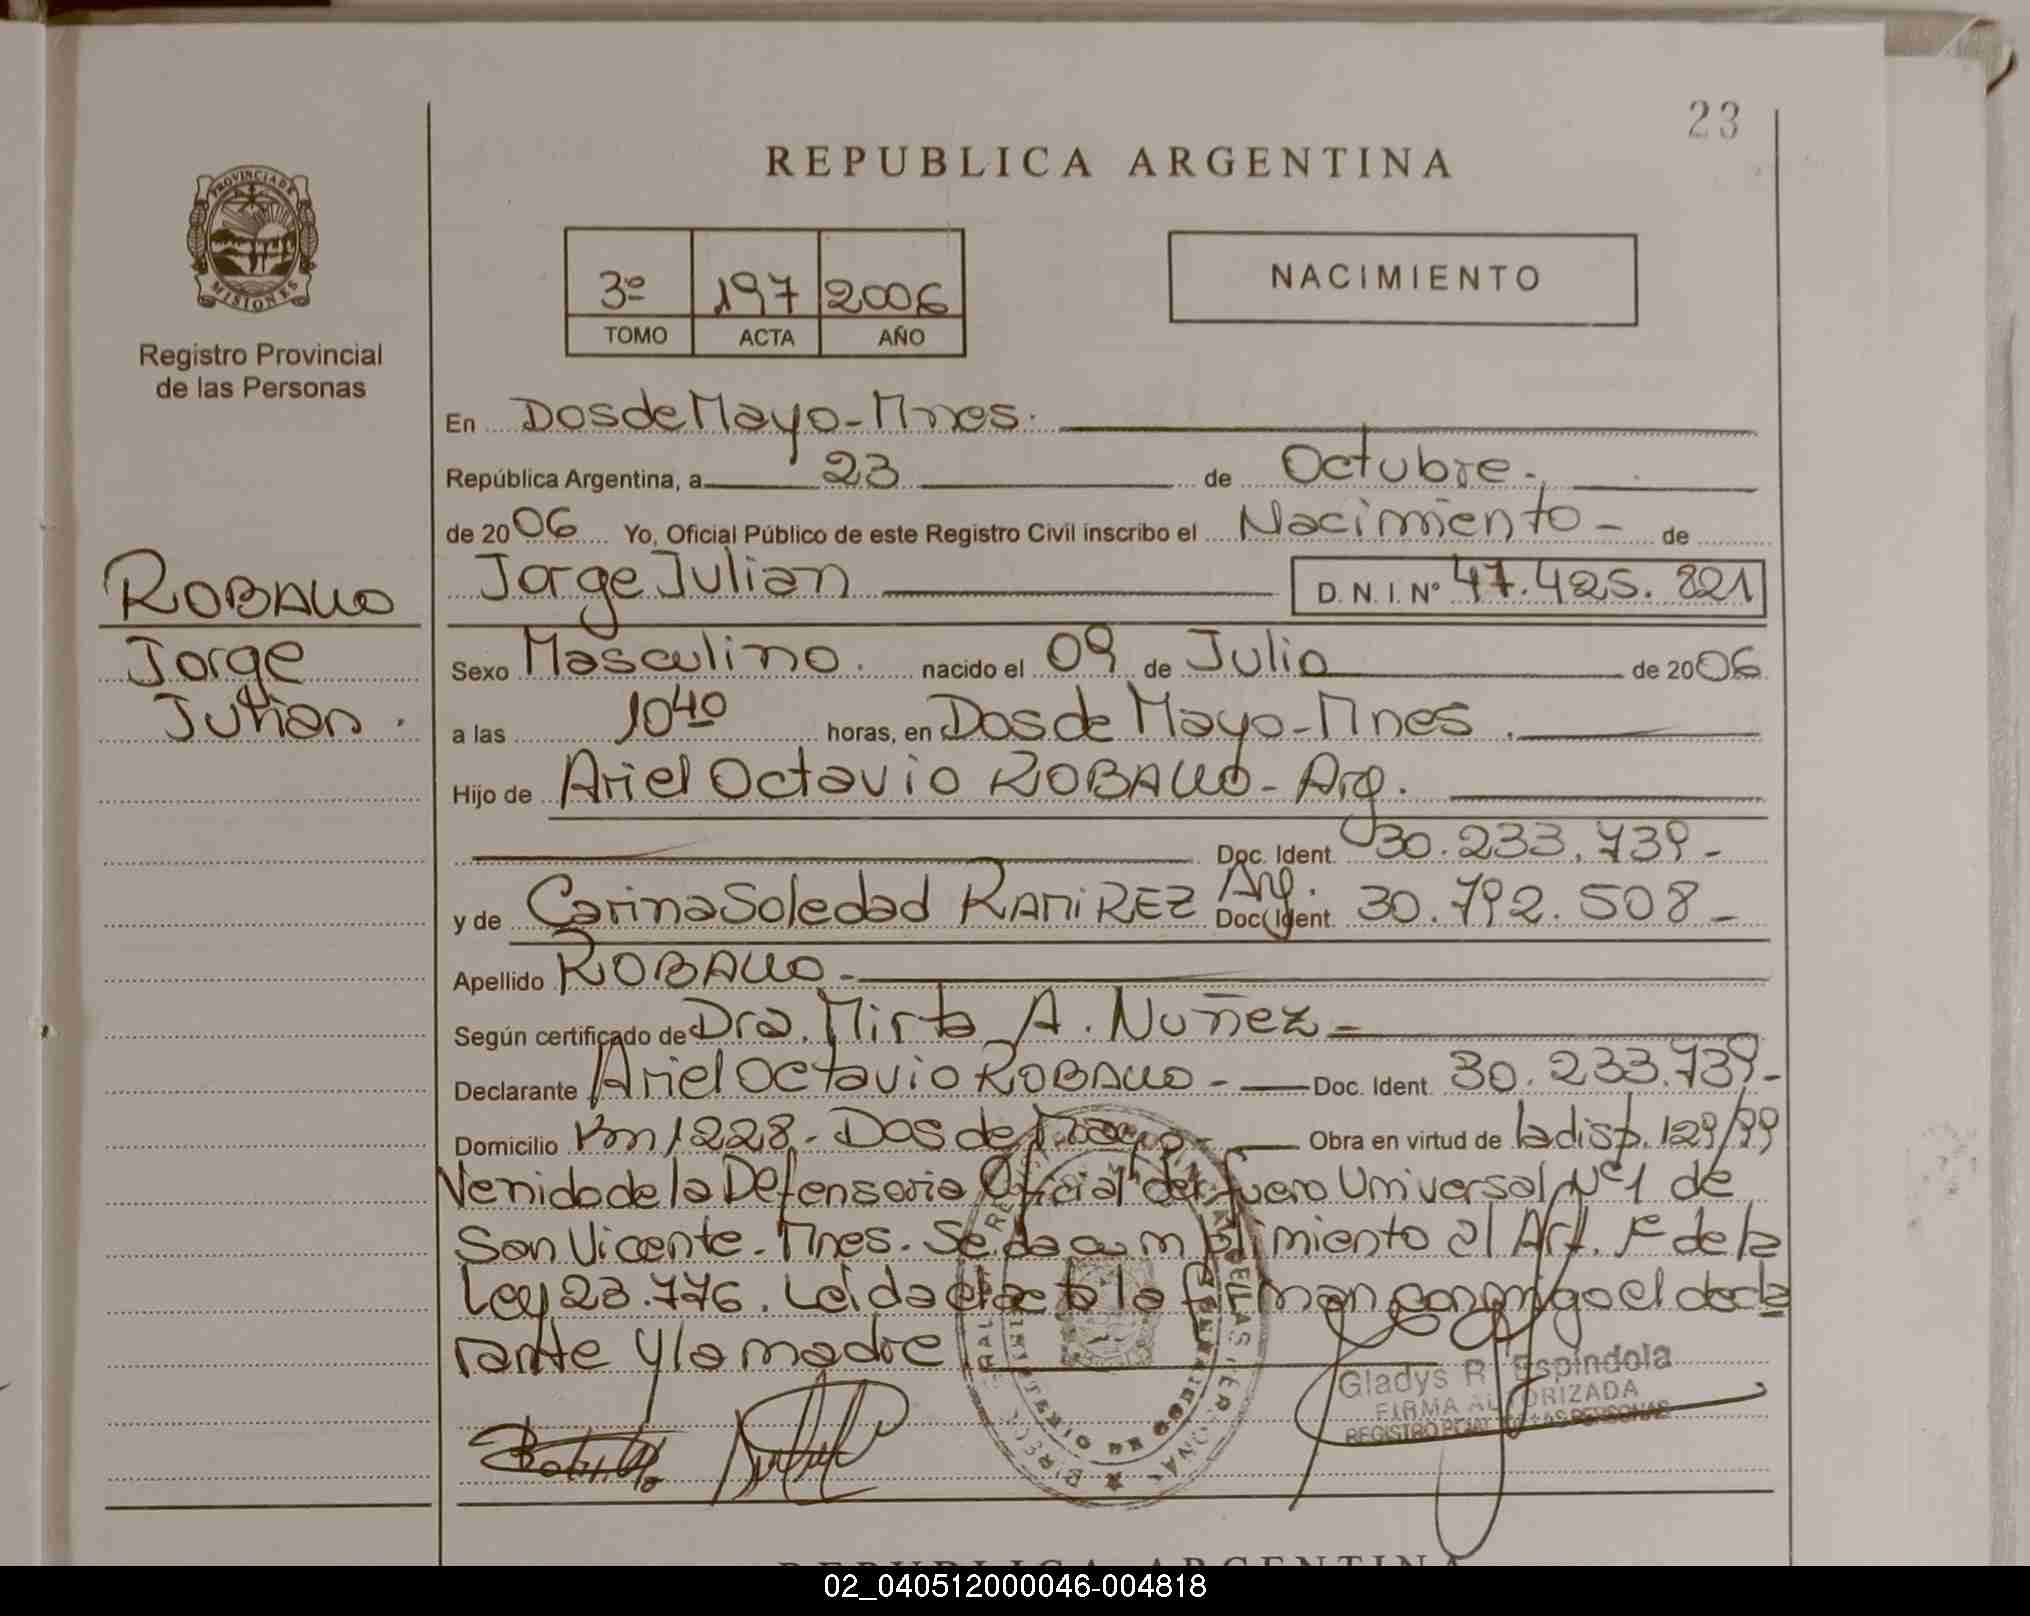 23
REPUBLICA ARGENTINA
PROVINCIA DE MISIONES
3º 197 2006
TOMO ACTA AÑO
NACIMIENTO
Registro Provincial
de las Personas
En Dos de Mayo - Mnes.
República Argentina, a 23 de Octubre.
de 2006 Yo, Oficial Público de este Registro Civil inscribo el Nacimiento - de
ROBALLO
Jorge
Julian.
Jorge Julian D.N.I. Nº 47.425.821
Sexo Masculino. nacido el 09 de Julio de 2006
a las 10 40 horas, en Dos de Mayo - Mnes.
Hijo de Ariel Octavio ROBALLO - Arg.
Doc. Ident. 30.233.739 -
y de Carina Soledad RAMIREZ Arg. Doc. Ident. 30.792.508 -
Apellido ROBALLO -
Según certificado de Dra. Mirta A. Nuñez -
Declarante Ariel Octavio ROBALLO - Doc. Ident. 30.233.739 -
Domicilio Km 1228 - Dos de Mayo - Obra en virtud de la disp. 129/99
Venido de la Defensoria Oficial del fuero Universal Nº 1 de
San Vicente - Mnes. Se da cumplimiento al Art. 1º de la
Ley 23.776. Leída el acta la firman conmigo el decla
rante y la madre
Gladys R. Espindola
FIRMA AUTORIZADA
REGISTRO PCIAL DE LAS PERSONAS
REPUBLICA ARGENTINA
02_040512000046-004818